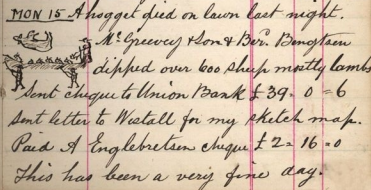 MON 15 A hogget died on lawn last night.
Mc Greevey & Son & Ber. Bengtsen
dipped over 600 sheep mostly lambs
Sent cheque to Union Bank £39=0=6
sent letter to Westell for my sketch map.
Paid A Englebretsen cheque £2=16=0
This has been a very fine day.